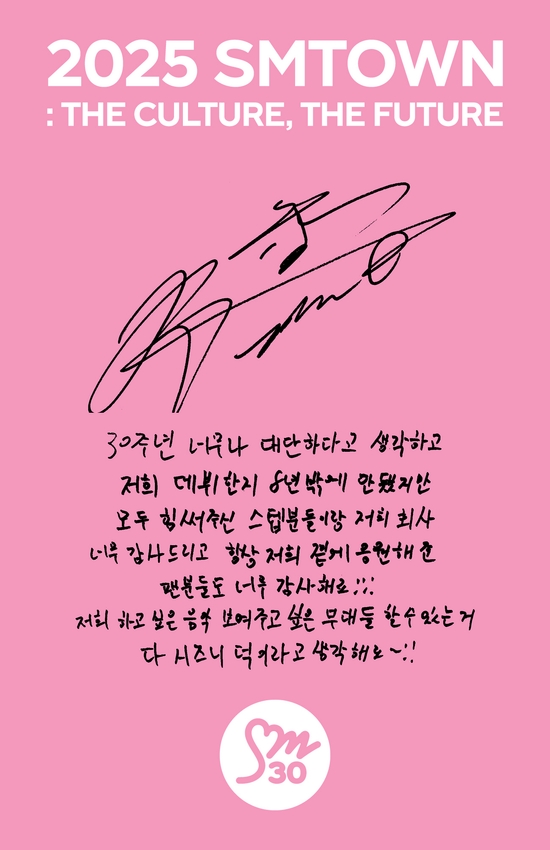 2025 SMTOWN
: THE CULTURE, THE FUTURE
30주년 너무나 대단하다고 생각하고
저희 데뷔한지 8년밖에 안됐지만
모두 힘써주신 스텝분들이랑 저희 회사
너무 감사드리고 항상 저희 곁에 응원해준
팬분들도 너무 감사해요;;;
저희 하고 싶은 음악 보여주고 싶은 무대들 할 수 있는 거
다 시즈니 덕이라고 생각해요~!!
Sm
30